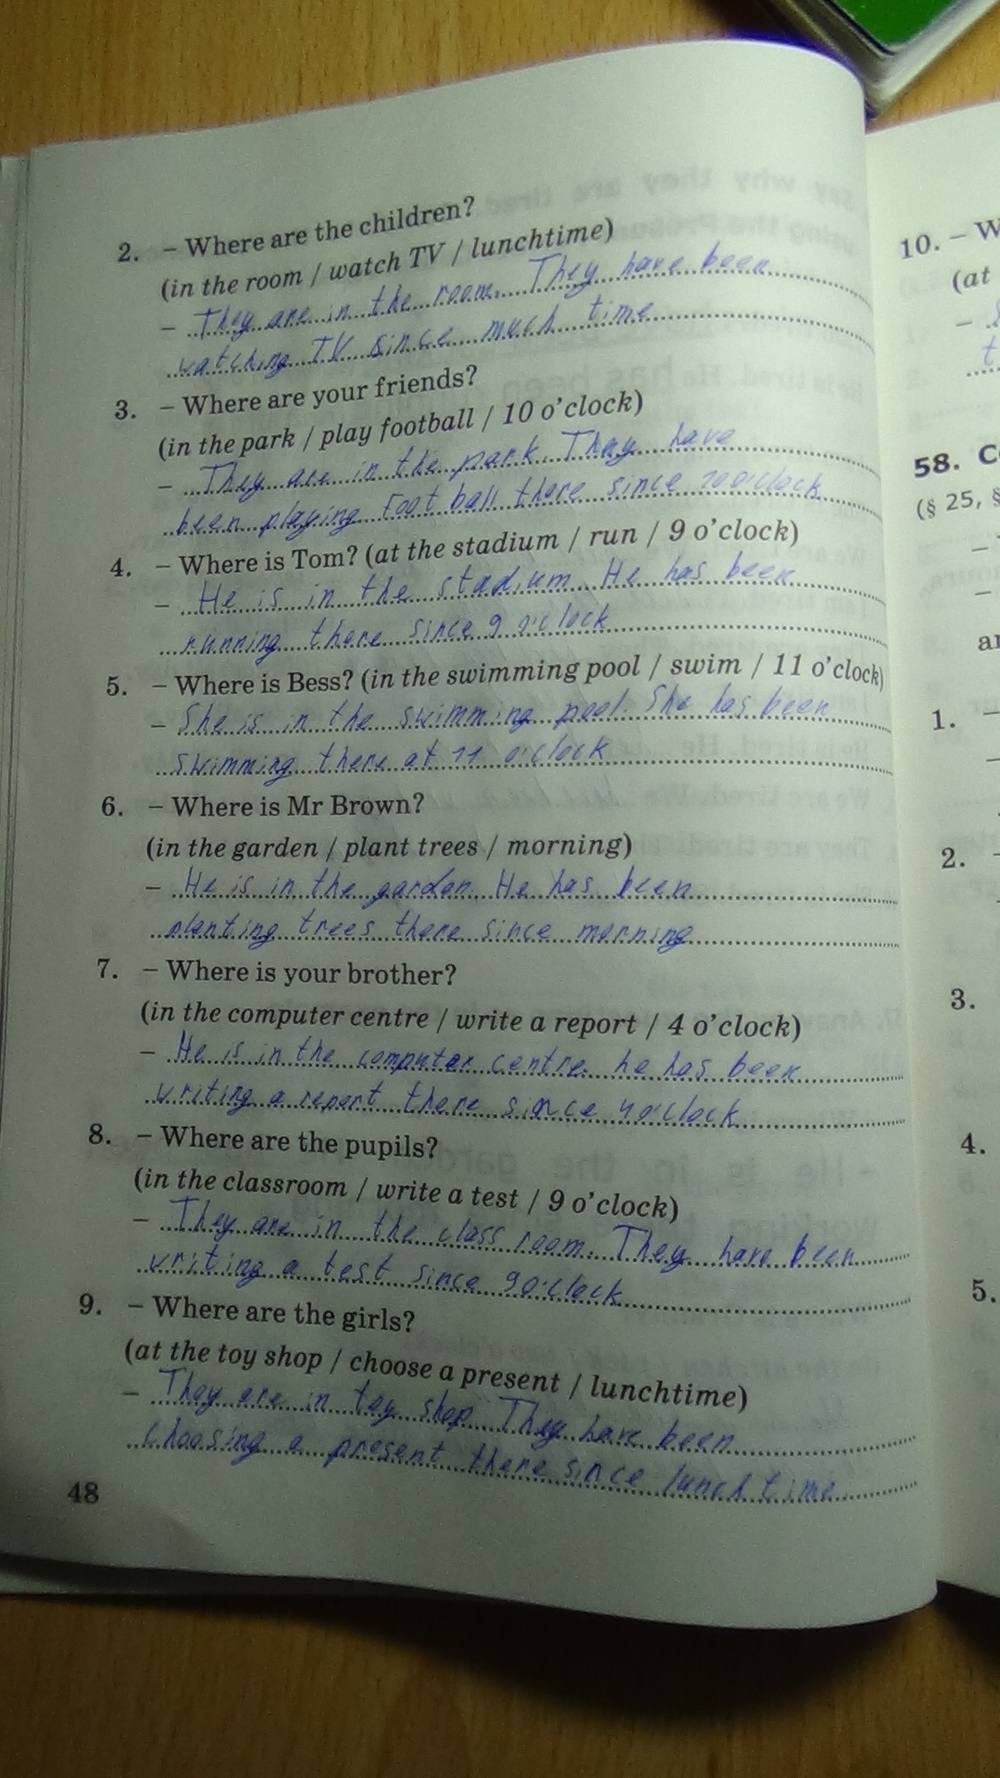 2. – Where are the children?
(in the room / watch TV / lunchtime)
– They are in the room. They have been
watching TV since much time
3. – Where are your friends?
(in the park / play football / 10 o'clock)
– They are in the park. They have
been playing Foot ball there since 10 o'clock
4. – Where is Tom? (at the stadium / run / 9 o'clock)
– He is in the stadium. He has been
running there since 9 o'clock
5. – Where is Bess? (in the swimming pool / swim / 11 o'clock)
– She is in the swimming pool. She has been
swimming there at 11 o'clock
6. – Where is Mr Brown?
(in the garden / plant trees / morning)
– He is in the garden. He has been
planting trees there since morning
7. – Where is your brother?
(in the computer centre / write a report / 4 o'clock)
– He is in the computer centre. he has been
writing a report there since 4 o'clock
8. – Where are the pupils?
(in the classroom / write a test / 9 o'clock)
– They are in the class room. They have been
writing a test since 9 o'clock
9. – Where are the girls?
(at the toy shop / choose a present / lunchtime)
– They are in toy shop. They have been
choosing a present there since lunch time
48
10. – W
(at
–
t
58. C
(§ 25, §
–
–
1. –
–
2. –
3.
4.
5.